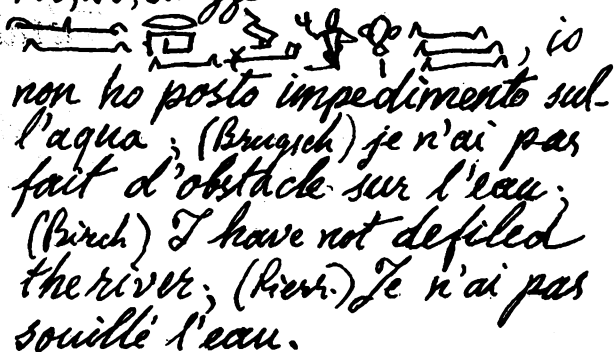 , io
non ho posto impedimento sul-
l'aqua ; (Brugsch) je n'ai pas
fait d'obstacle sur l'eau ;
(Birch) I have not defiled
the river ; (Pierr.) Je n'ai pas
souillé l'eau.